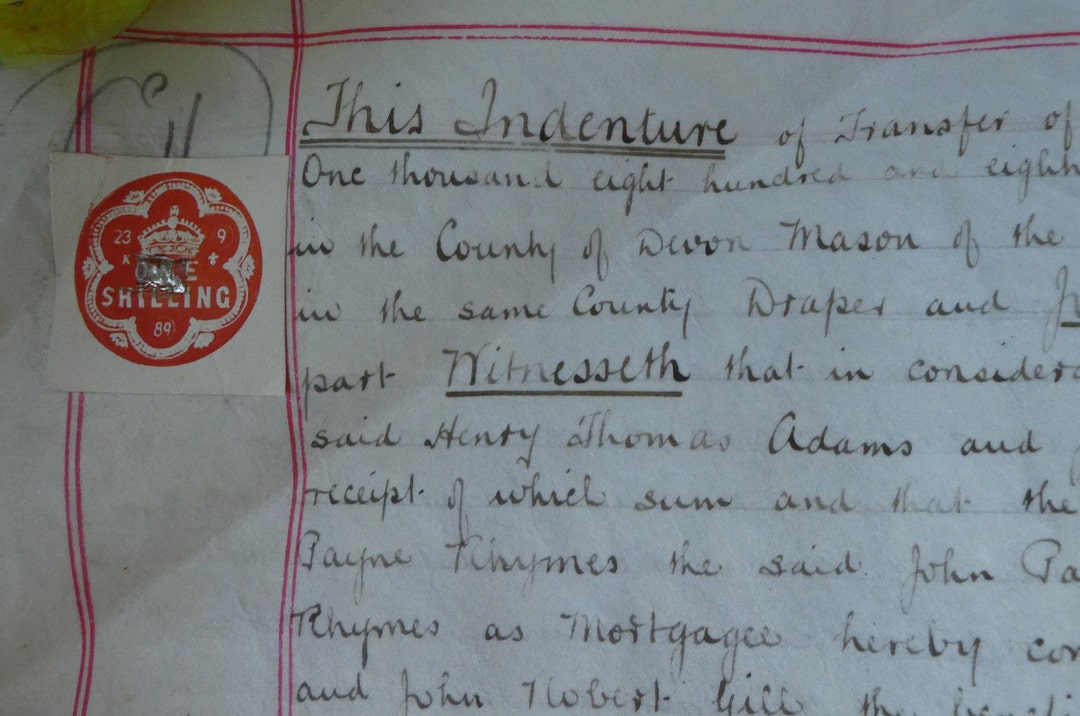 This Indenture of Transfer of
One thousand eight hundred and eight
in the County of Devon Mason of the
in the same County Draper and
part Witnesseth that in consider
said Henry Thomas Adams and
receipt of which sum and that the
Payne Rhymes the said John Pa
Rhymes as Mortgagee hereby con
and John Robert Gill the benefi
23 9
K
ONE
SHILLING
89